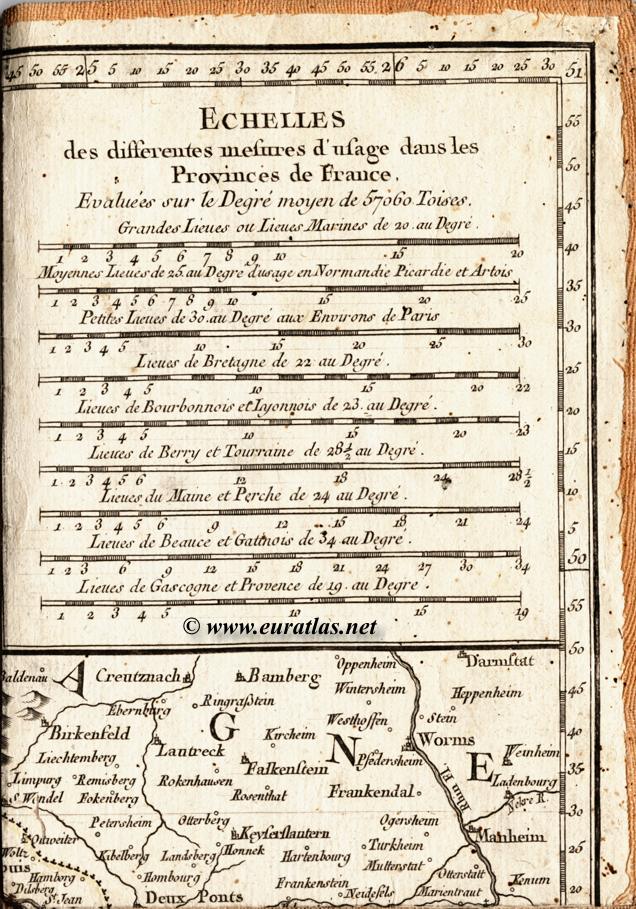 45 50 55 25 5 10 15 20 30 35 40 45 50 55 26 5 10 15 20 25 30 51
ECHELLES
des differentes mesures d'usage dans les
Provinces de France.
Evaluées sur le Degré moyen de 57060 Toises.
Grandes Lieues ou Lieues Marines de 20. au Degré.
1 2 3 4 5 6 7 8 9 10 15 20
Moyennes Lieues de 25. au Degré d'usage en Normandie Picardie et Artois
1 2 3 4 5 6 7 8 9 10 15 20 25
Petites Lieues de 30. au Degré aux Environs de Paris
1 2 3 4 5 10 15 20 25 30
Lieues de Bretagne de 22 au Degré.
1 2 3 4 5 10 15 20 22
Lieues de Bourbonnois et Lyonnois de 23. au Degré.
1 2 3 4 5 10 15 20 23
Lieues de Berry et Tourraine de 28 1/2 au Degré.
1 2 3 4 5 6 12 18 24 28 1/2
Lieues du Maine et Perche de 24 au Degré.
1 2 3 4 5 6 9 12 15 18 21 24
Lieues de Beauce et Gattinois de 34 au Degré.
1 2 3 6 9 12 15 18 21 24 27 30 34
Lieues de Gascogne et Provence de 19. au Degré.
1 2 3 4 5 10 15 19
© www.euratlas.net
55
50
45
40
35
30
25
20
15
10
5
50
55
50
45
40
35
30
25
20
Baldenau
A
Creutznach
Bamberg
Oppenheim
Darmstat
Wintersheim
Heppenheim
Ebernburg
Ringrastein
Birkenfeld
G
Kircheim
Westhoffen
Stein
Worms
Liechtemberg
Lautreck
Falkenstein
N
Pfedersheim
E
Weinheim
Ladenbourg
Limpurg
Remisberg
Rokenhausen
S. Wendel
Fokenberg
Rosenthat
Frankendal
Rhin Fl.
Nekre R.
Petersheim
Otterberg
Ogersheim
Manheim
Keyserslantern
Ottweiler
Kibelberg
Landsberg
Honnek
Hartenbourg
Turkheim
Mutterstat
Otterstatt
Woltz
Hamborg
Dilsberg
S.t Jean
Hombourg
Deux Ponts
Frankenstein
Neidefels
Marientraut
Kenum